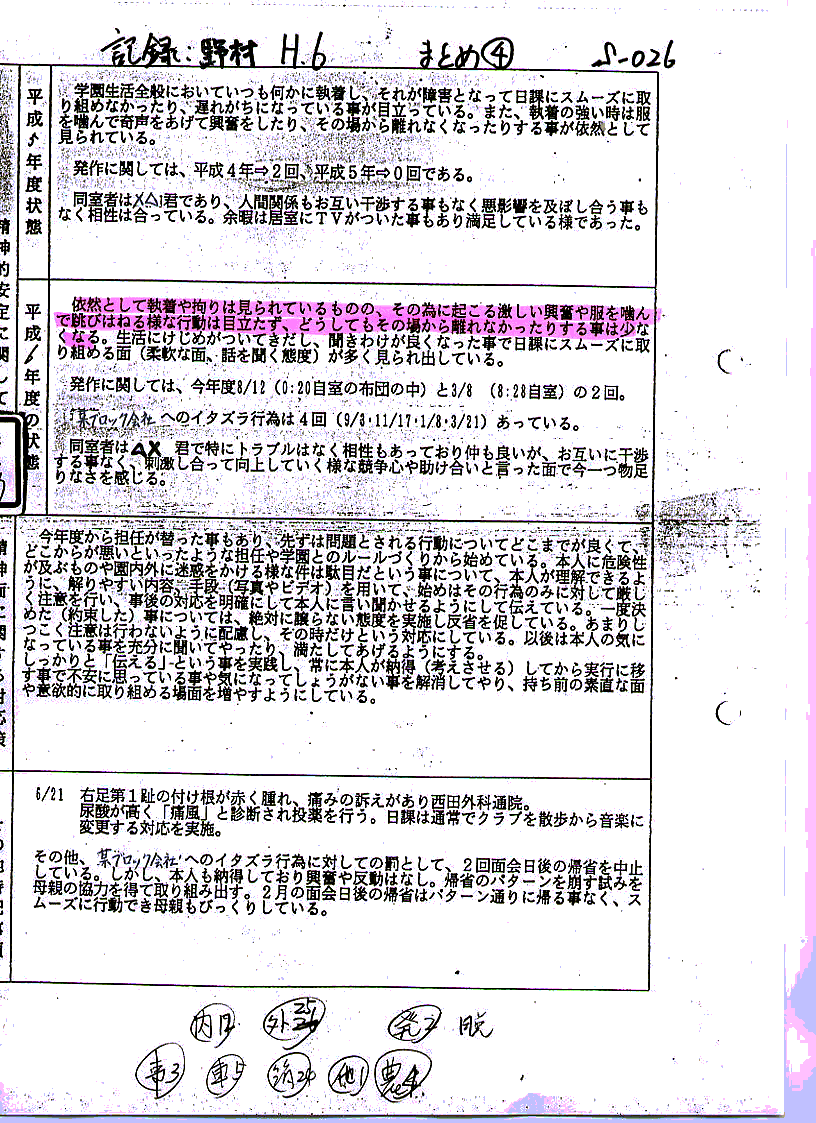 記録:野村 H.6 まとめ④ S-026
平成5年度状態
学園生活全般においていつも何かに執着し、それが障害となって日課にスムーズに取
り組めなかったり、遅れがちになっている事が目立っている。また、執着の強い時は服
を噛んで奇声をあげて興奮をしたり、その場から離れなくなったりする事が依然として
見られている。
発作に関しては、平成4年⇒2回、平成5年⇒0回である。
同室者は×△君であり、人間関係もお互い干渉する事もなく悪影響を及ぼし合う事も
なく相性は合っている。余暇は居室にTVがついた事もあり満足している様であった。
精神的安定に関して
平成6年度の状態
依然として執着や拘りは見られているものの、その為に起こる激しい興奮や服を噛ん
で跳びはねる様な行動は目立たず、どうしてもその場から離れなかったりする事は少な
くなる。生活にけじめがついてきだし、聞きわけが良くなった事で日課にスムーズに取
り組める面(柔軟な面、話を聞く態度)が多く見られ出している。
発作に関しては、今年度8/12(0:20自室の布団の中)と3/8 (8:28自室)の2回。
某ブロック会社へのイタズラ行為は4回(9/3・11/17・1/8・3/21)あっている。
同室者は△× 君で特にトラブルはなく相性もあっており仲も良いが、お互いに干渉
する事なく、刺激し合って向上していく様な競争心や助け合いと言った面で今一つ物足
りなさを感じる。
精神面に関する対応策
今年度から担任が替った事もあり、先ずは問題とされる行動についてどこまでが良くて、
どこからが悪いといったような担任や学園とのルールづくりから始めている。本人に危険性
が及ぶものや園内外に迷惑をかける様な件は駄目だという事について、本人が理解できるよ
うに、解りやすい内容、手段(写真やビデオ)を用いて、始めはその行為のみに対して厳し
く注意を行い、事後の対応を明確にして本人に言い聞かせるようにして伝えている。一度決
めた(約束した)事については、絶対に譲らない態度を実施し反省を促している。あまりし
つこく注意は行わないように配慮し、その時だけという対応にしている。以後は本人の気に
なっている事を充分に聞いてやったり、満たしてあげるようにする。
しっかりと「伝える」という事を実践し、常に本人が納得(考えさせる)してから実行に移
す事で不安に思っている事や気になってしょうがない事を解消してやり、持ち前の素直な面
や意欲的に取り組める場面を増やすようにしている。
6/21 右足第1趾の付け根が赤く腫れ、痛みの訴えがあり西田外科通院。
尿酸が高く「痛風」と診断され投薬を行う。日課は通常でクラブを散歩から音楽に
変更する対応を実施。
その他、某ブロック会社へのイタズラ行為に対しての罰として、2回面会日後の帰省を中止
している。しかし、本人も納得しており興奮や反動はなし。帰省のパターンを崩す試みを
母親の協力を得て取り組み出す。2月の面会日後の帰省はパターン通りに帰る事なく、ス
ムーズに行動でき母親もびっくりしている。
外 25 26 発2
車5 他1